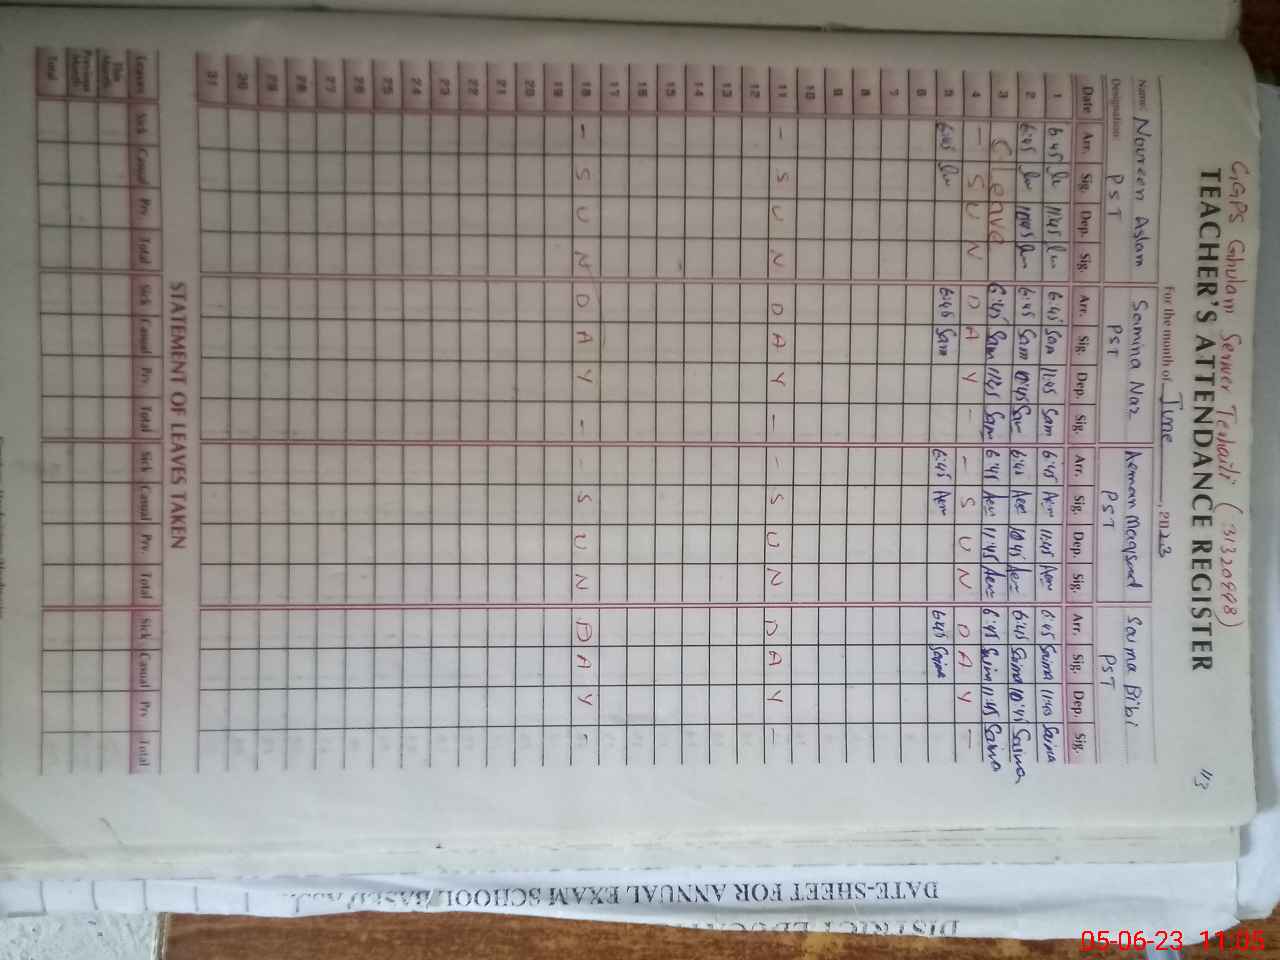 GGPS Ghulam Serwer Terhaili (31320998)
TEACHER'S ATTENDANCE REGISTER
113
For the month of June, 2023
Name: Noureen Aslam Samina Naz Aeman Maqsood Saima Bibi
Designation: PST PST PST PST
Date Arr. Sig. Dep. Sig. Arr. Sig. Dep. Sig. Arr. Sig. Dep. Sig. Arr. Sig. Dep. Sig.
1 6:45 11:45 6:45 Sam 11:45 Sam 6:45 Aem 11:45 Aem 6:45 Saima 11:45 Saima
2 6:45 10:45 6:45 Sam 10:45 Sam 6:45 Aem 10:45 Aem 6:45 Saima 10:45 Saima
3 C Leave 6:45 Sam 11:45 Sam 6:45 Aem 11:45 Aem 6:45 Saima 11:45 Saima
4 - S U N D A Y - - S U N D A Y -
5 6:45 6:45 Sam 6:45 Aem 6:45 Saima
6
7
8
9
10
11 - S U N D A Y - - S U N D A Y -
12
13
14
15
16
17
18 - S U N D A Y - - S U N D A Y -
19
20
21
22
23
24
25
26
27
28
29
30
31
STATEMENT OF LEAVES TAKEN
Leaves Sick Casual Prv. Total Sick Casual Prv. Total Sick Casual Prv. Total Sick Casual Prv. Total
This Month
Previous Month
Total
DATE-SHEET FOR ANNUAL EXAM SCHOOL BASED
05-06-23 11:05